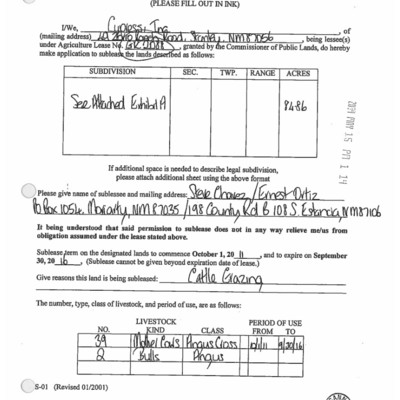 (PLEASE FILL OUT IN INK)
I/We, Cimless, Inc, of
(mailing address) Road, Stanley, NM 87056, being lessee(s)
under Agriculture Lease No. , granted by the Commissioner of Public Lands, do hereby
make application to sublease the lands described as follows:
SUBDIVISION SEC. TWP. RANGE ACRES
See Attached Exhibit A 8486
If additional space is needed to describe legal subdivision,
please attach additional sheet using the above format
Please give name of sublessee and mailing address: Steve Chavez / Ernest Ortiz
PO Box 1054, Moriarty, NM 87035 / 198 County Rd B 108 S. Estancia, NM 87106
It being understood that said permission to sublease does not in any way relieve me/us from
obligation assumed under the lease stated above.
Sublease term on the designated lands to commence October 1, 20 11, and to expire on September
30, 20 16. (Sublease cannot be given beyond expiration date of lease.)
Give reasons this land is being subleased: Cattle Grazing
The number, type, class of livestock, and period of use, are as follows:
LIVESTOCK PERIOD OF USE
NO. KIND CLASS FROM TO
39 Mother Cows Angus Cross 10/1/11 9/30/16
2 Bulls Angus
S-01 (Revised 01/2001)